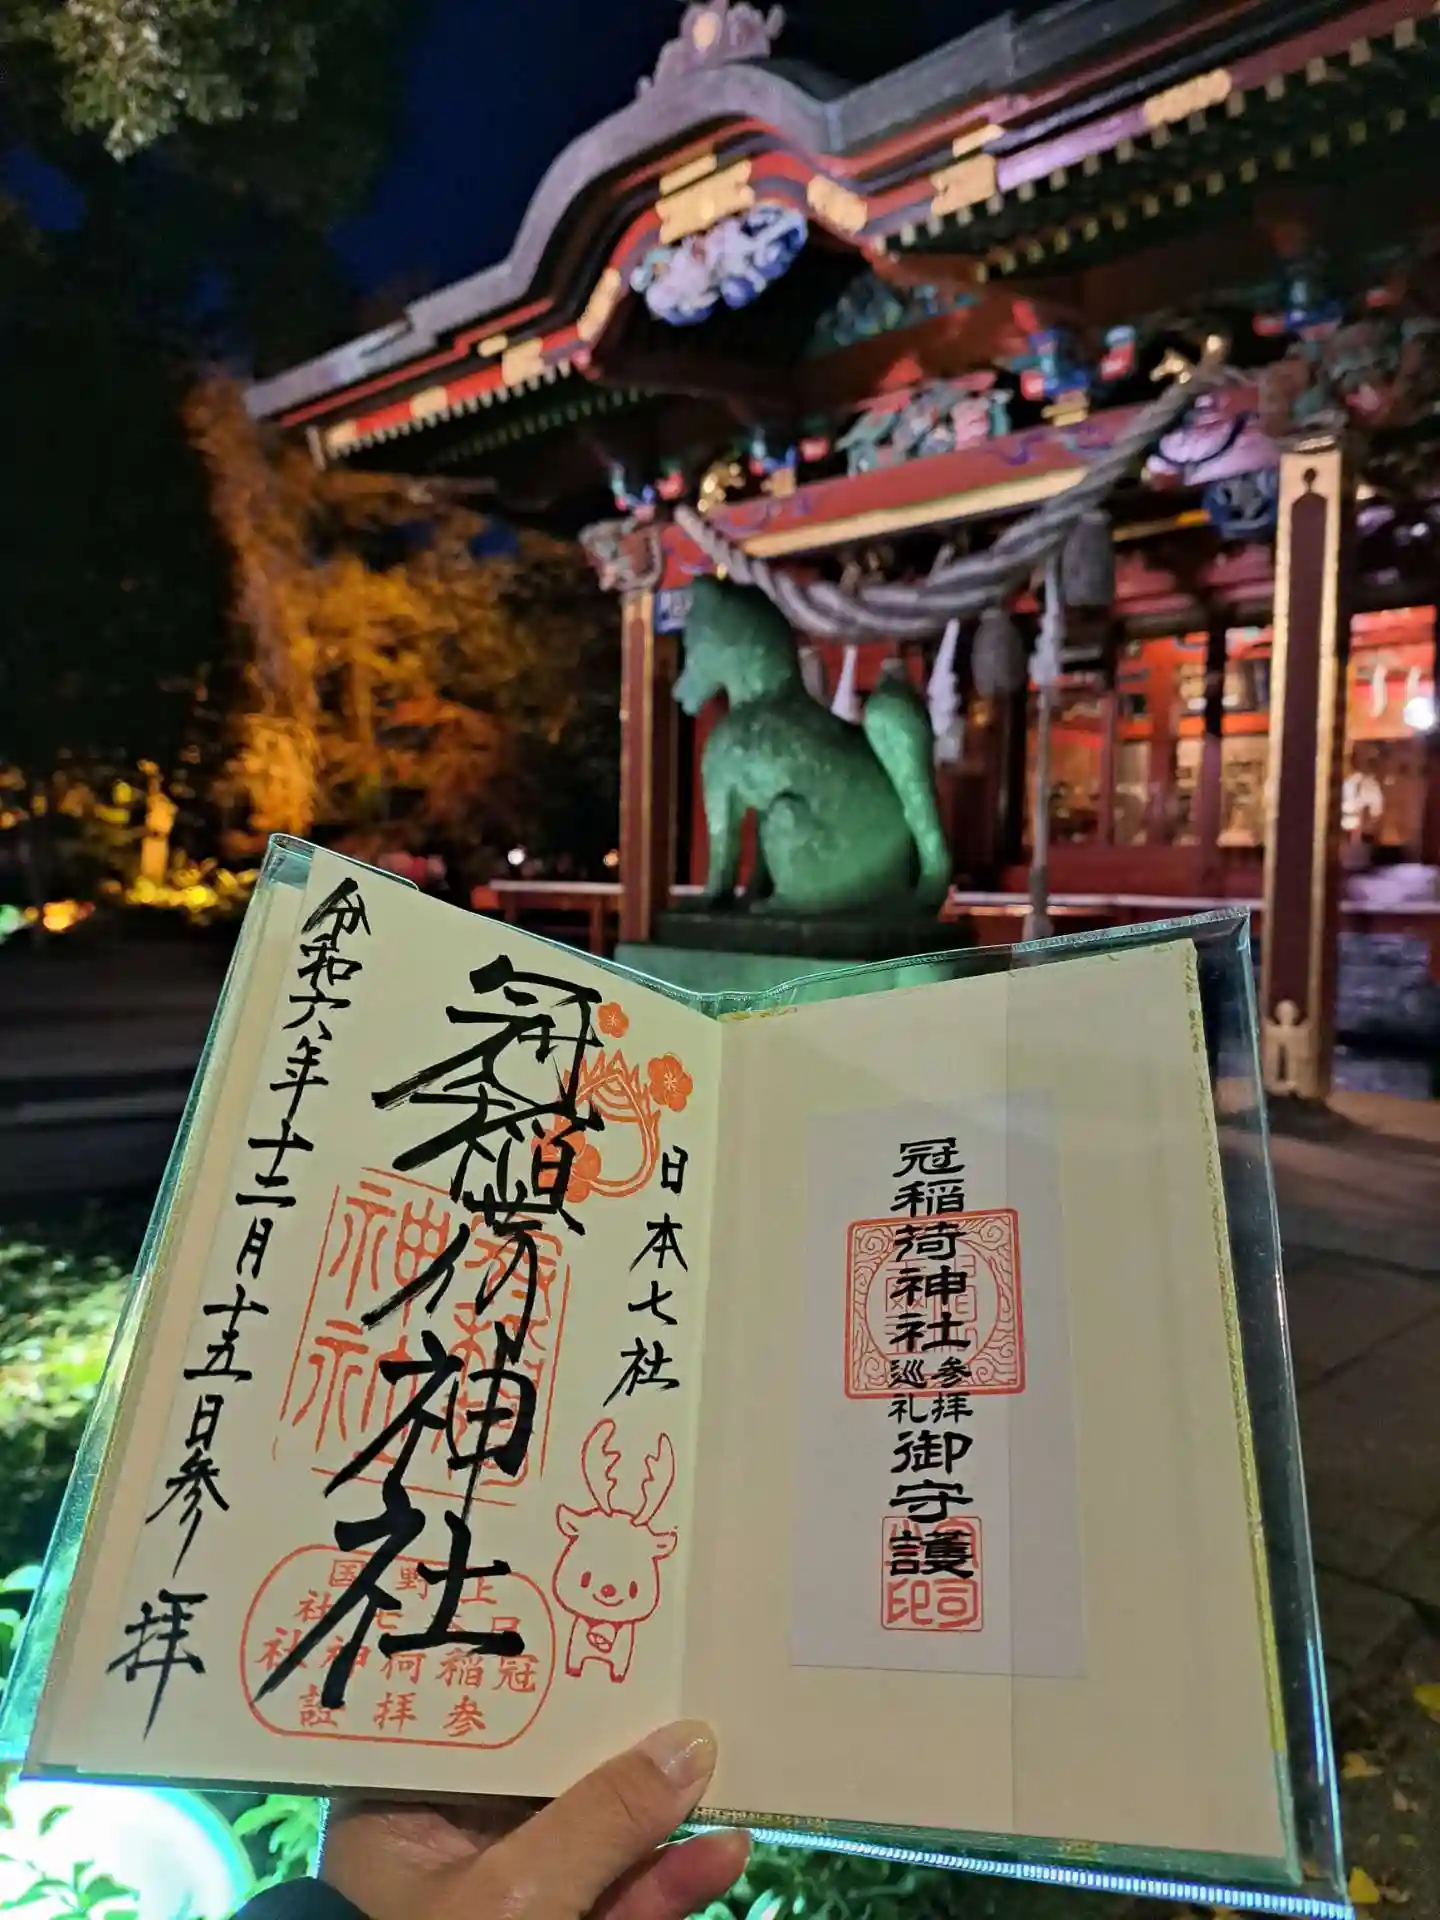 冠稲荷神社
参拝
巡礼
御守護
日本七社
冠稲荷神社
令和六年十二月十五日参拝
上野国
冠稲荷神社
参拝証